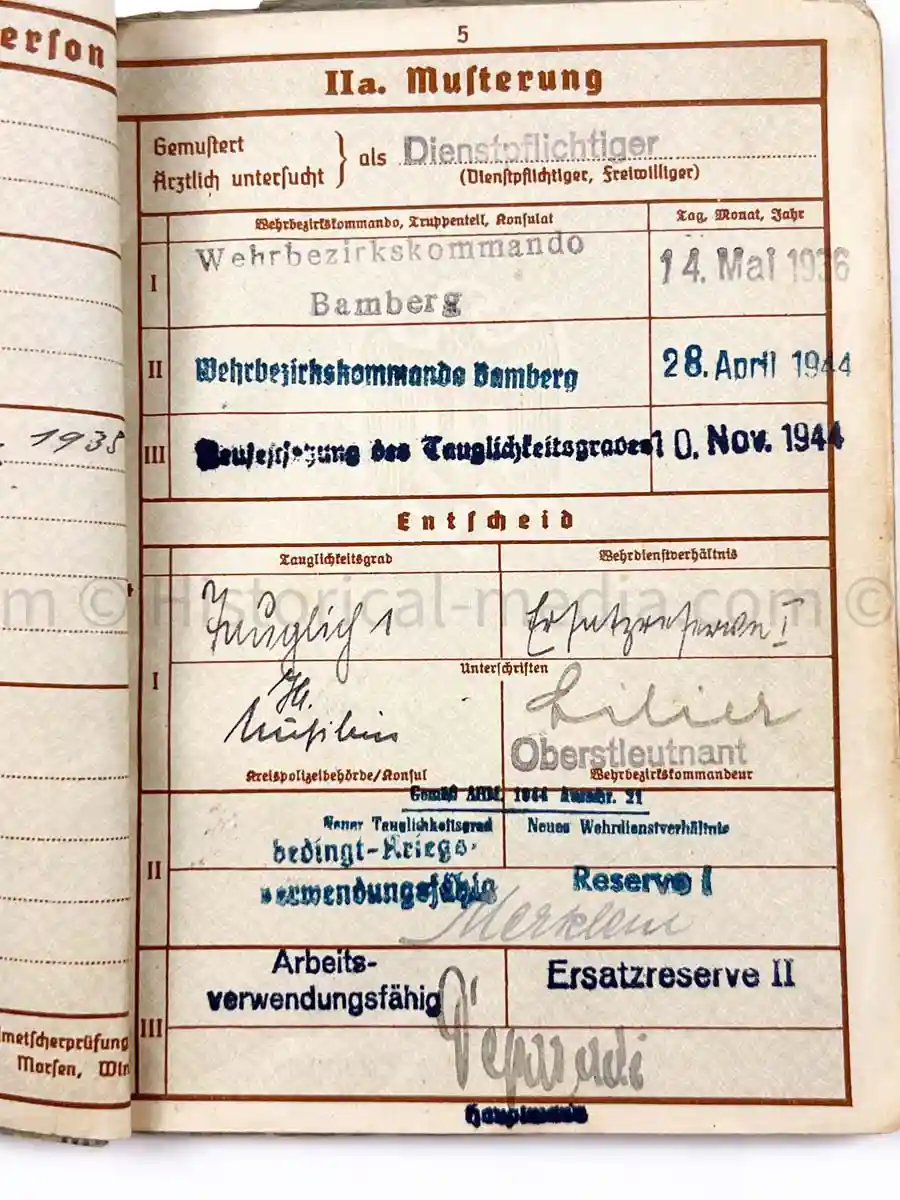 erson
1938
metscherprüfung
Morsen, Win
5
IIa. Musterung
Gemustert
Ärztlich untersucht
als Dienstpflichtiger
(Dienstpflichtiger, Freiwilliger)
Wehrbezirkskommando, Truppenteil, Konsulat
Tag, Monat, Jahr
I
Wehrbezirkskommando
Bamberg
14. Mai 1936
II
Wehrbezirkskommando Bamberg
28. April 1944
III
Neufestsetzung des Tauglichkeitsgrades
10. Nov. 1944
Entscheid
Tauglichkeitsgrad
Wehrdienstverhältnis
m © Historical-media.com ©
I
Tauglich 1
Ersatzreserve I
Unterschriften
Lilier
Oberstleutnant
Kreispolizeibehörde/Konsul
Wehrbezirkskommandeur
Gemäß AHM. 1944 21
II
Neuer Tauglichkeitsgrad
Neues Wehrdienstverhältnis
bedingt-Kriegs-
verwendungsfähig
Reserve I
III
Arbeits-
verwendungsfähig
Ersatzreserve II
Hauptmann